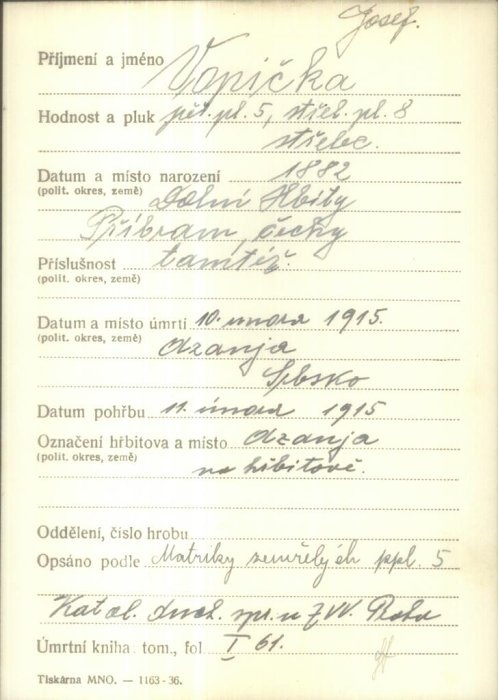 Josef.
Příjmení a jméno Vopička
Hodnost a pluk pěš. pl. 5, střel. pl. 8
střelec.
Datum a místo narození 1882
(polit. okres, země) Dolní Hbity
Příbram, Čechy
Příslušnost tamtéž.
(polit. okres, země)
Datum a místo úmrtí 10. února 1915.
(polit. okres, země) Ozanja
Srbsko
Datum pohřbu 11. února 1915
Označení hřbitova a místo Ozanja
(polit. okres, země) na hřbitově.
Oddělení, číslo hrobu
Opsáno podle Matriky zemřelých ppl. 5
Katol. duch. spr. u ZVV. Praha
Úmrtní kniha tom., fol I 61.
Tiskárna MNO. — 1163-36.